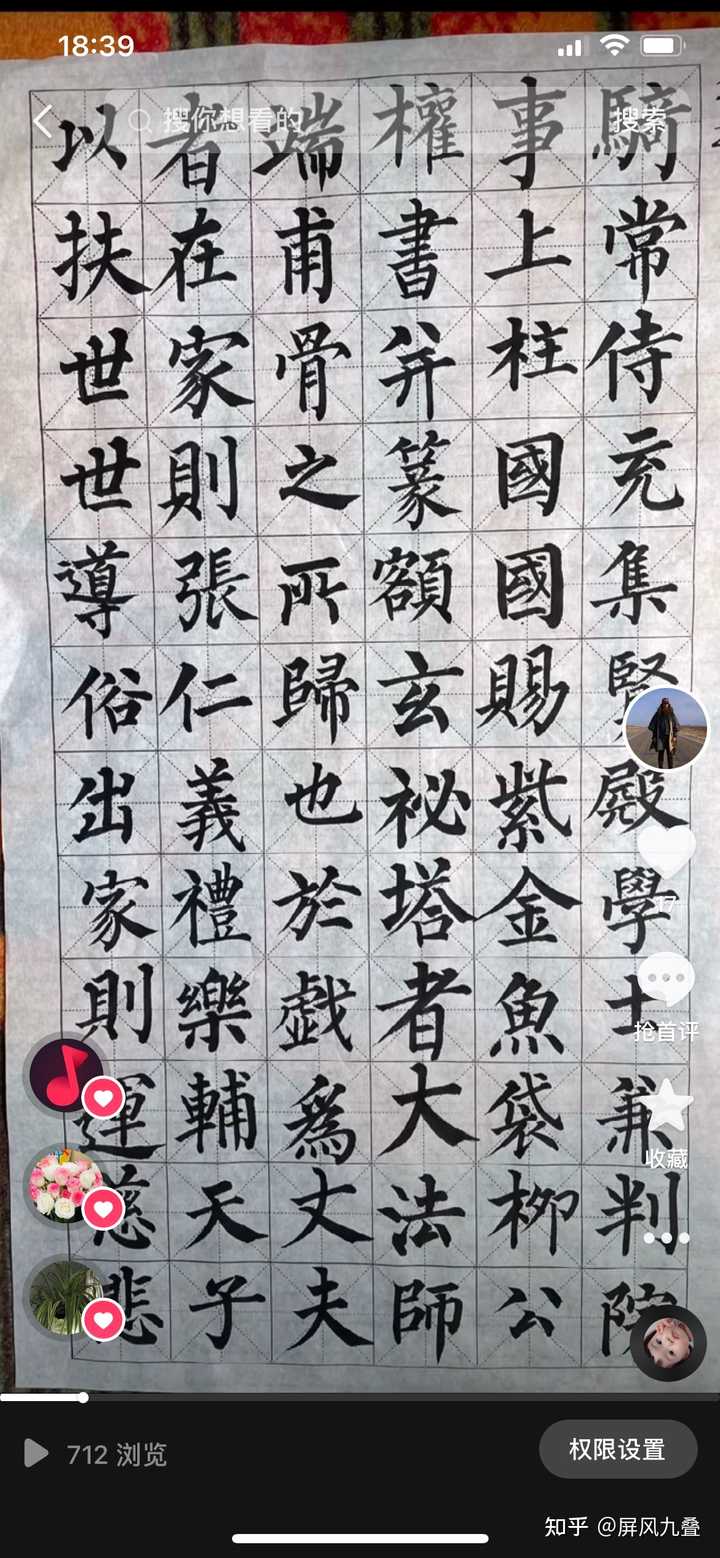 18:39
搜你想看的
搜索
騎常侍充集賢殿學士兼判院
事上柱國國賜紫金魚袋柳公
權書并篆額玄祕塔者大法師
端甫骨之所歸也於戲爲丈夫
者在家則張仁義禮樂輔天子
以扶世世導俗出家則運慈悲
17
抢首评
收藏
712 浏览
权限设置
知乎 @屏风九叠